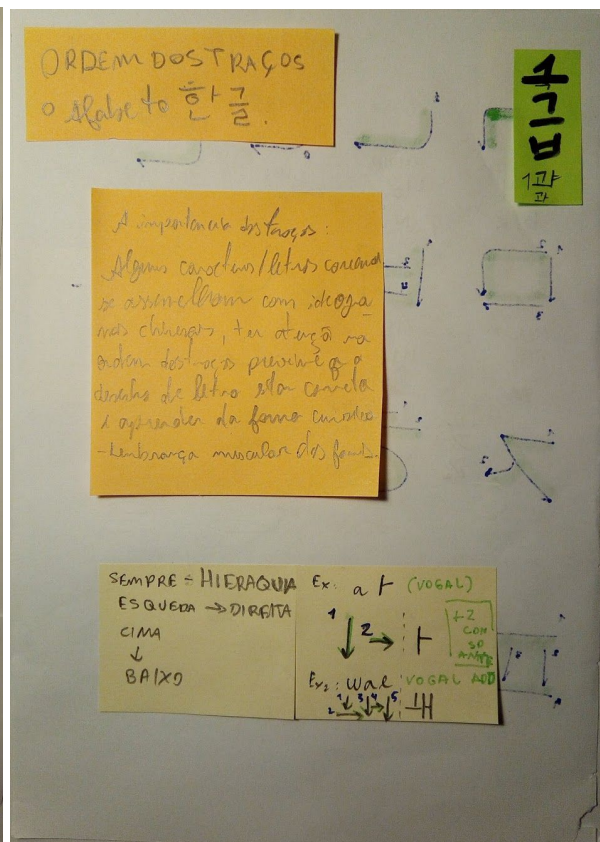 ORDEM DOS TRAÇOS
O Alfabeto 한글.
1과
과
A importancia dos traços:
Alguns caracteres/letras coreanas
se assemelham com ideogra
mas chineses, ter atenção na
ordem dos traços previne q o
desenho da letra
e aprender da forma
-Lembrança muscular das
SEMPRE = HIERAQUIA
ESQUEDA → DIREITA
CIMA
↓
BAIXO
Ex: a ㅏ (VOGAL)
1 2 ㅏ
+2
CON
SO
ANTE
Ex2: wae VOGAL ADD
1 2 3 4 5 ㅙ